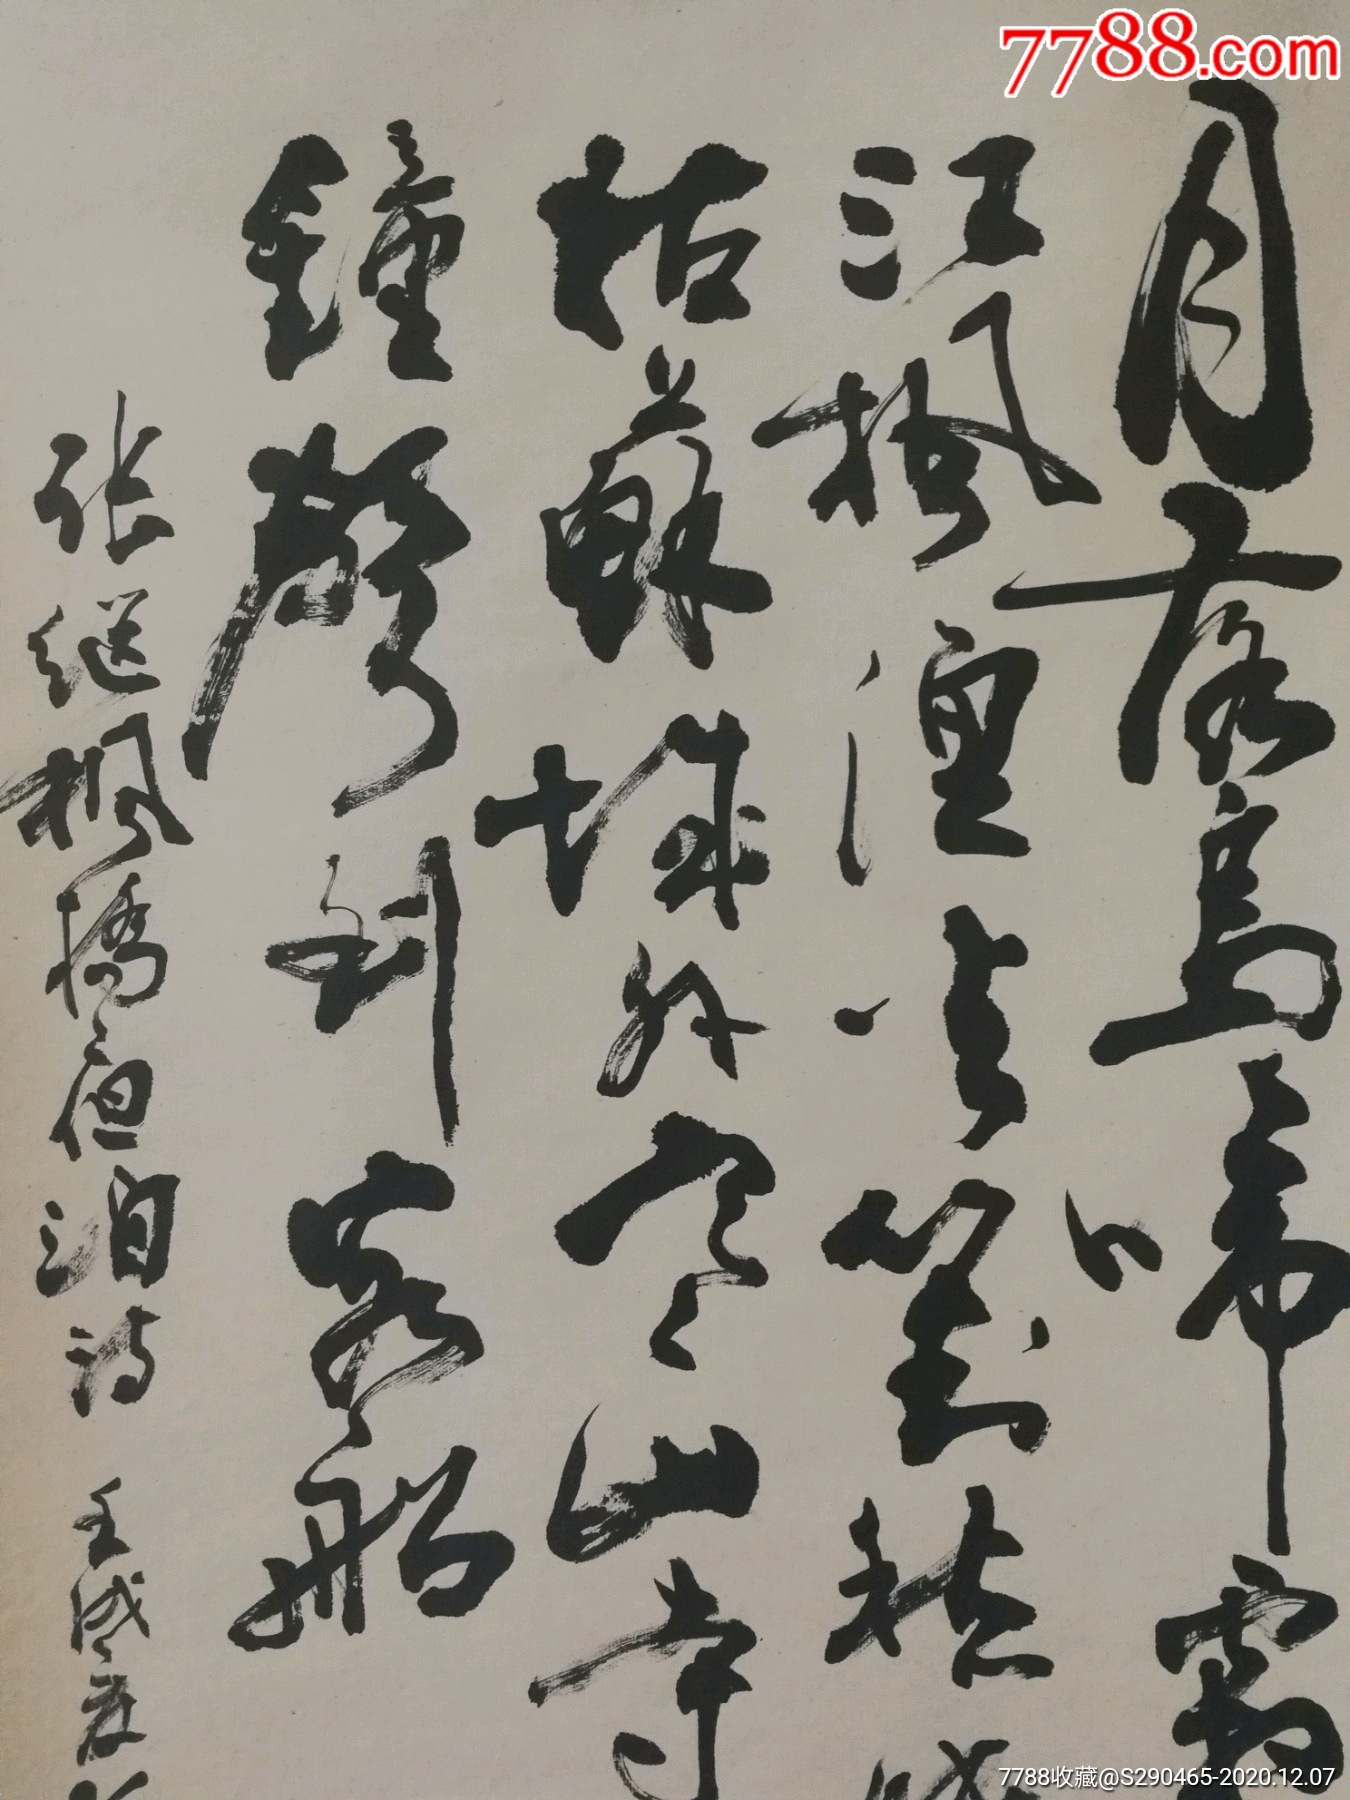 7788.com
月落烏啼霜
江楓漁火對愁
姑蘇城外寒山寺
鐘聲到客船
张继楓橋夜泊诗 壬戌夏
7788收藏@S290465-2020.12.07